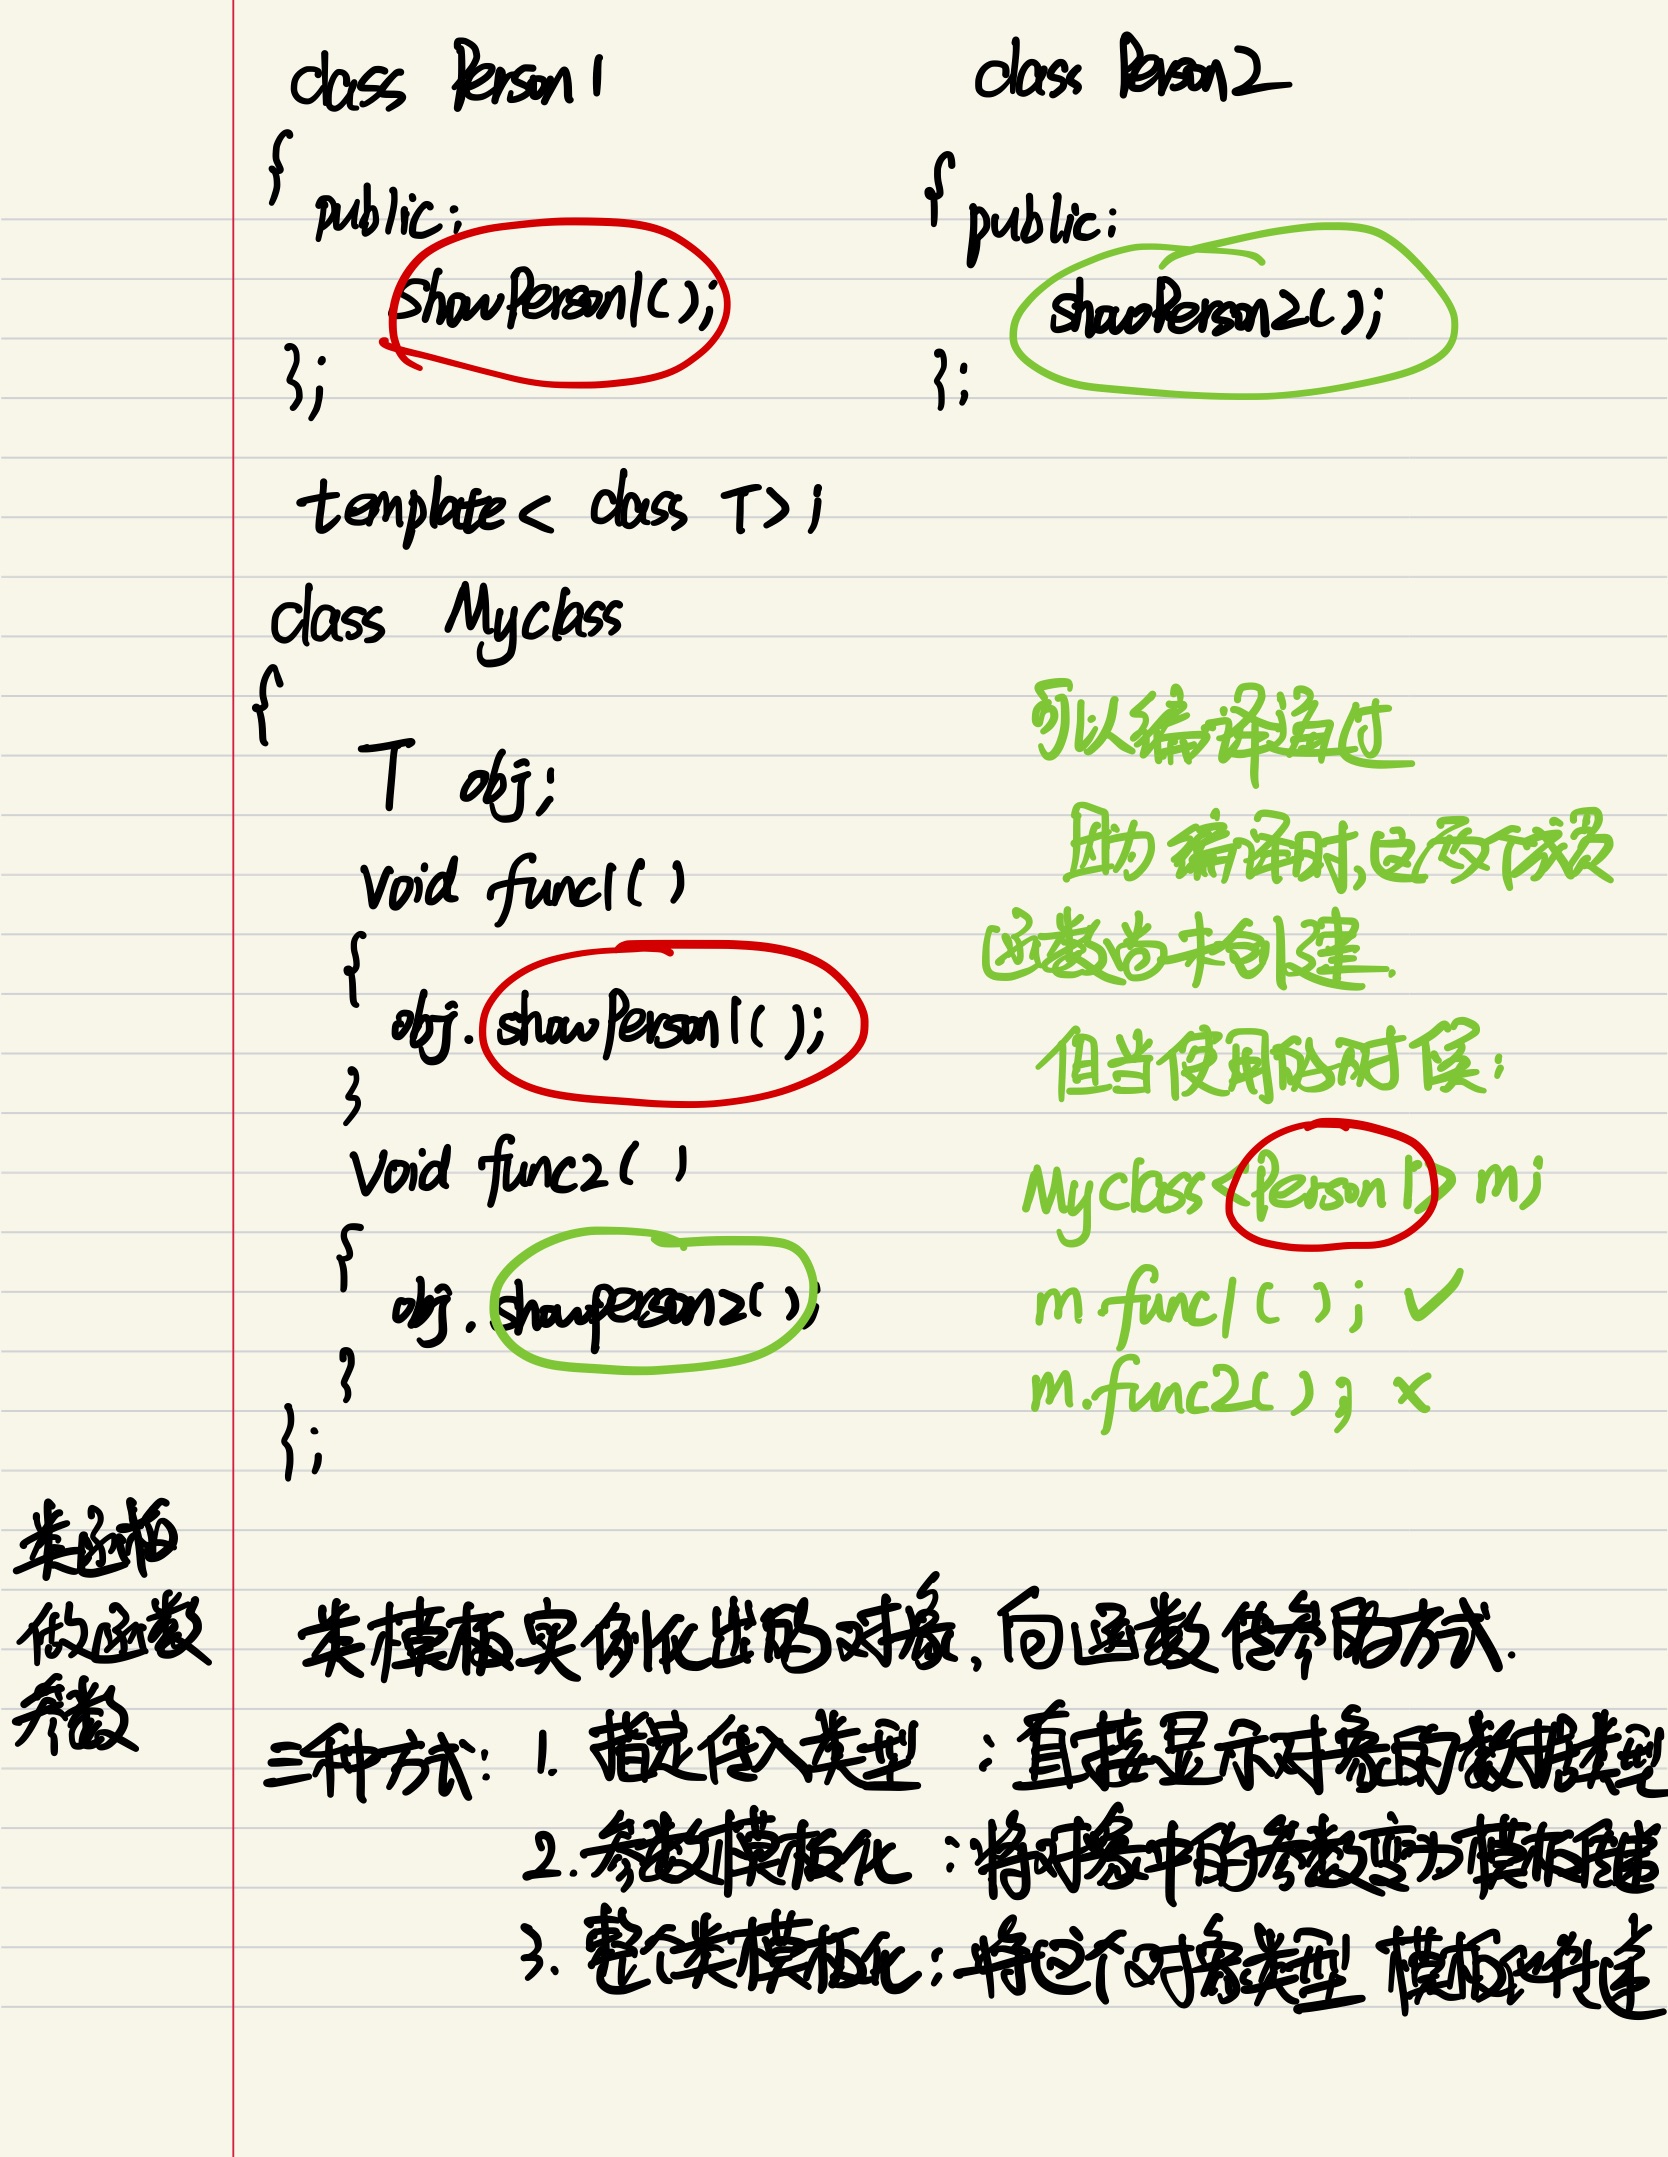 class Person1
{
public:
showPerson1();
};
class Person2
{
public:
showPerson2();
};
template< class T>;
class Myclass
{
T obj;
void func1()
{
obj. showPerson1();
}
void func2()
{
obj. showperson2();
}
};
可以编译通过
因为编译时,这两个成员
函数尚未创建.
但当使用的时候:
Myclass<Person1> m;
m.func1(); ✓
m.func2(); x
类函板
做函数
参数
类模板实例化出的对象,向函数传参的方式.
三种方式: 1. 指定传入类型 : 直接显示对象的数据类型
2. 参数模板化 : 将对象中的参数变为模板传递
3. 整个类模板化: 将这个对象类型 模板化传递